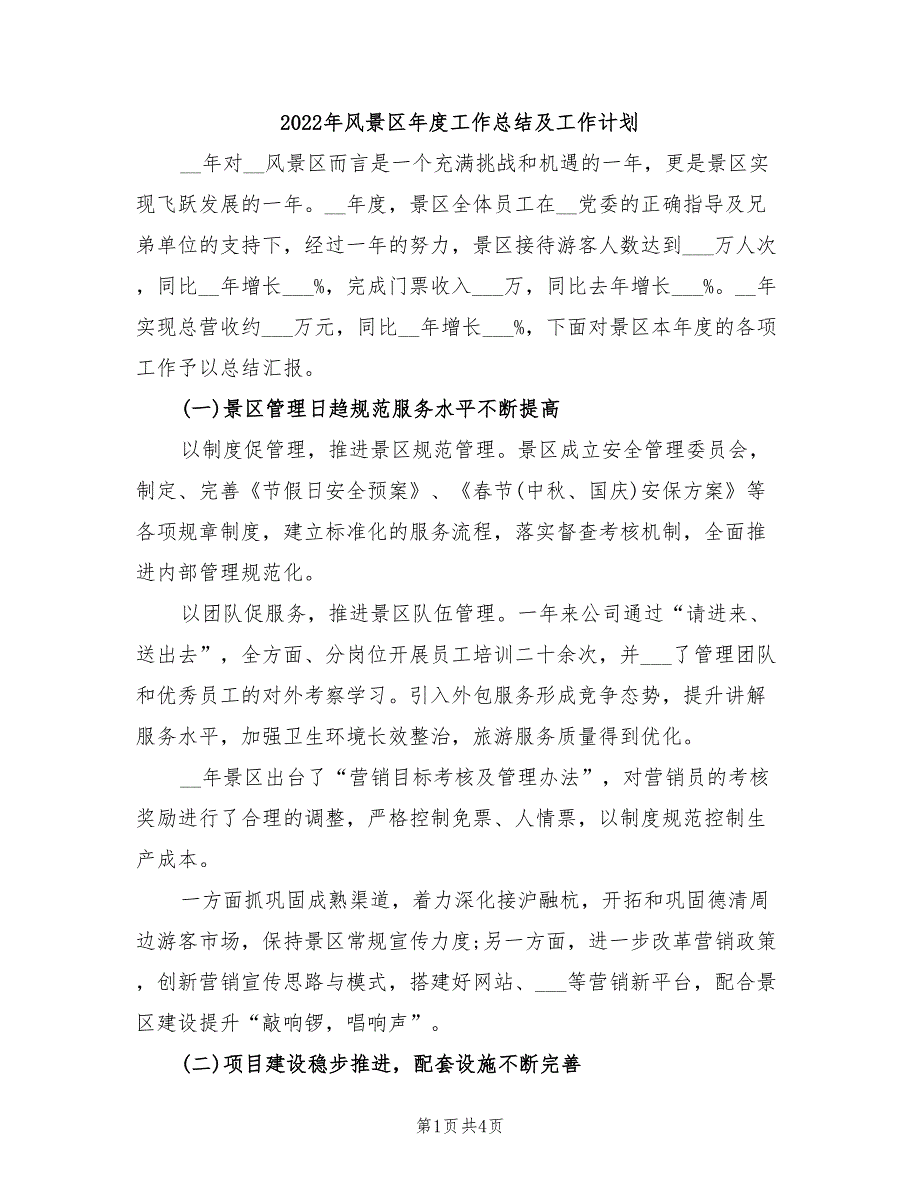 2022年风景区年度工作总结及工作计划
__年对__风景区而言是一个充满挑战和机遇的一年，更是景区实
现飞跃发展的一年。__年度，景区全体员工在__党委的正确指导及兄
弟单位的支持下，经过一年的努力，景区接待游客人数达到___万人次
，同比__年增长___%，完成门票收入___万，同比去年增长___%。__年
实现总营收约___万元，同比__年增长___%，下面对景区本年度的各项
工作予以总结汇报。
(一)景区管理日趋规范服务水平不断提高
以制度促管理，推进景区规范管理。景区成立安全管理委员会，
制定、完善《节假日安全预案》、《春节(中秋、国庆)安保方案》等
各项规章制度，建立标准化的服务流程，落实督查考核机制，全面推
进内部管理规范化。
以团队促服务，推进景区队伍管理。一年来公司通过“请进来、
送出去”，全方面、分岗位开展员工培训二十余次，并___了管理团队
和优秀员工的对外考察学习。引入外包服务形成竞争态势，提升讲解
服务水平，加强卫生环境长效整治，旅游服务质量得到优化。
__年景区出台了“营销目标考核及管理办法”，对营销员的考核
奖励进行了合理的调整，严格控制免票、人情票，以制度规范控制生
产成本。
一方面抓巩固成熟渠道，着力深化接沪融杭，开拓和巩固德清周
边游客市场，保持景区常规宣传力度;另一方面，进一步改革营销政策
，创新营销宣传思路与模式，搭建好网站、___等营销新平台，配合景
区建设提升“敲响锣，唱响声”。
(二)项目建设稳步推进，配套设施不断完善
第1页共4页